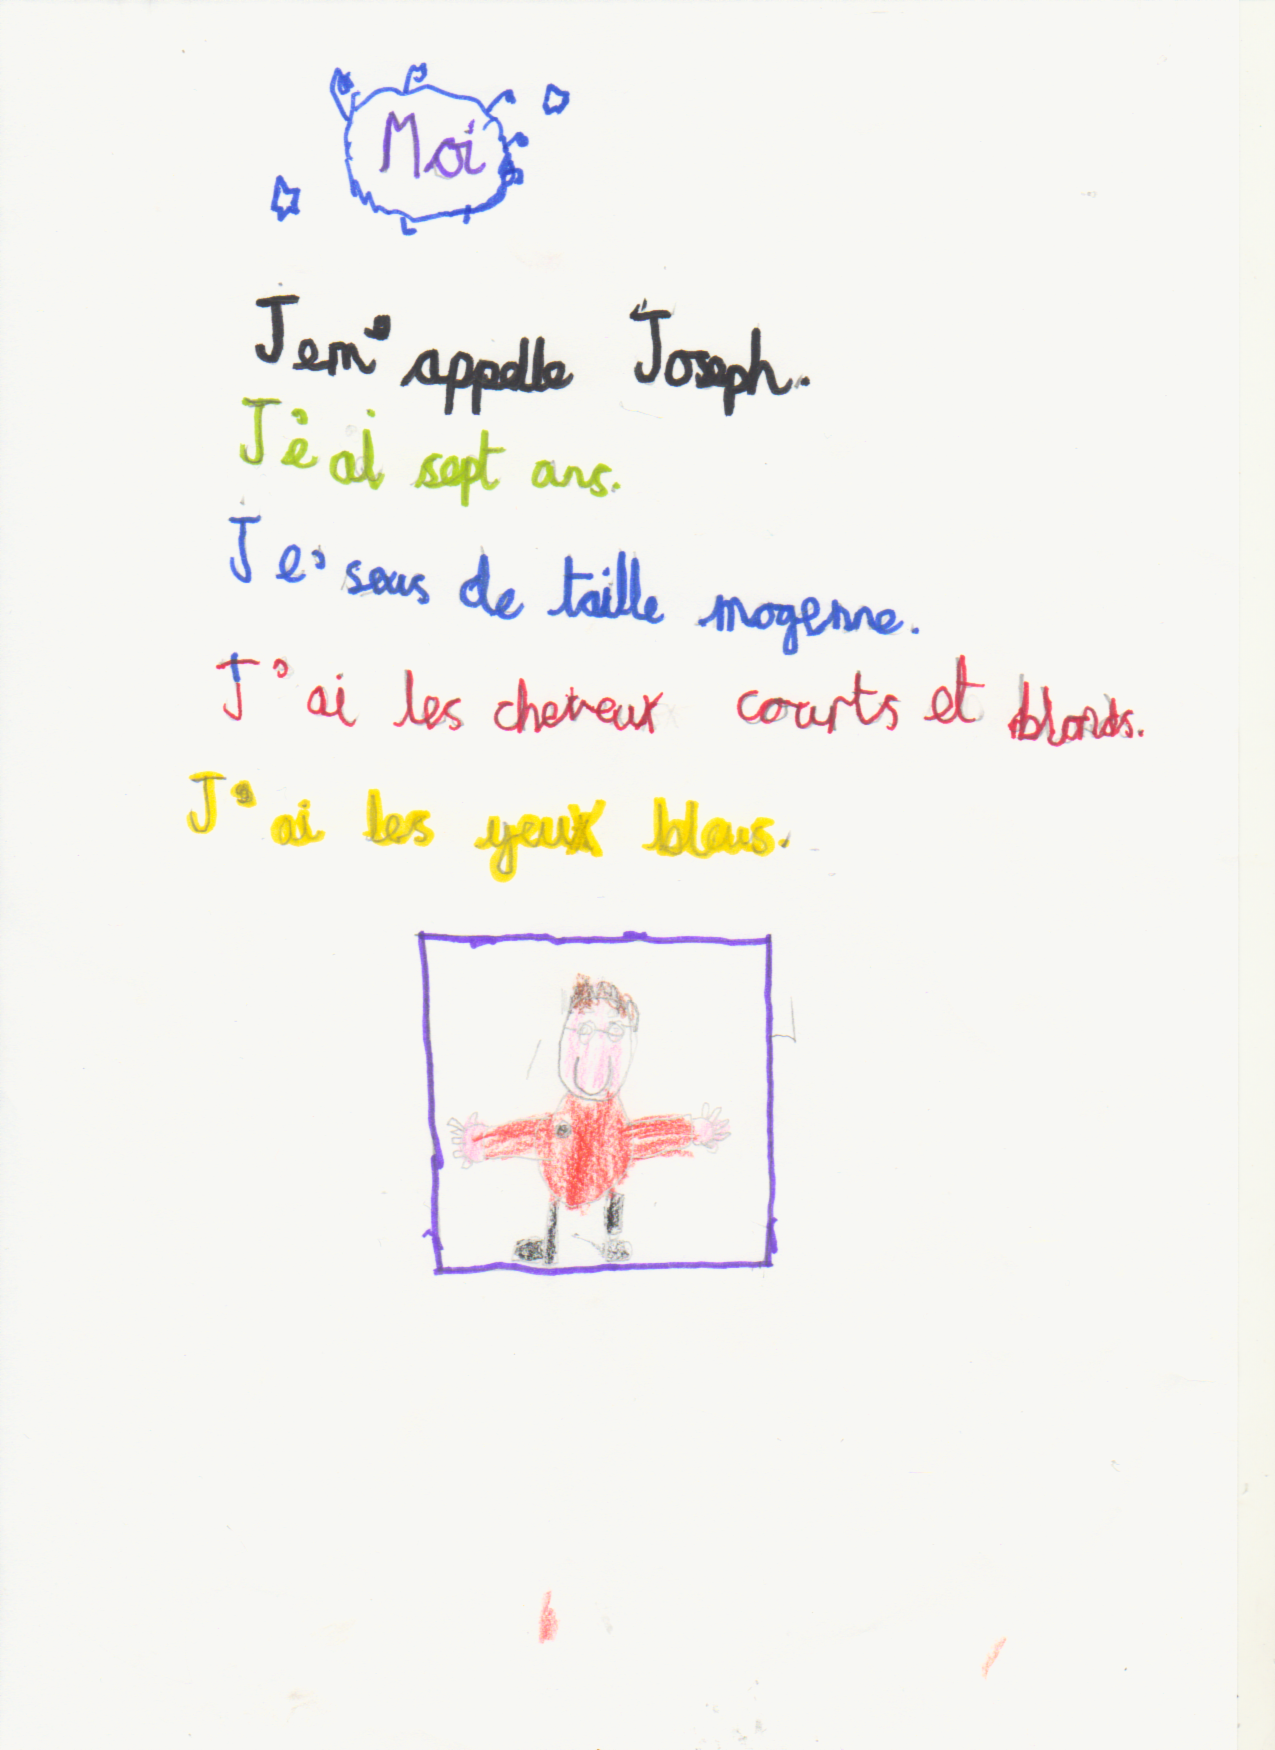 Moi
Jem' appelle Joseph.
Je'ai sept ans.
Je' sous de taille mogenne.
J'ai les cheveux courts et blonds.
J'ai les yeux bleus.